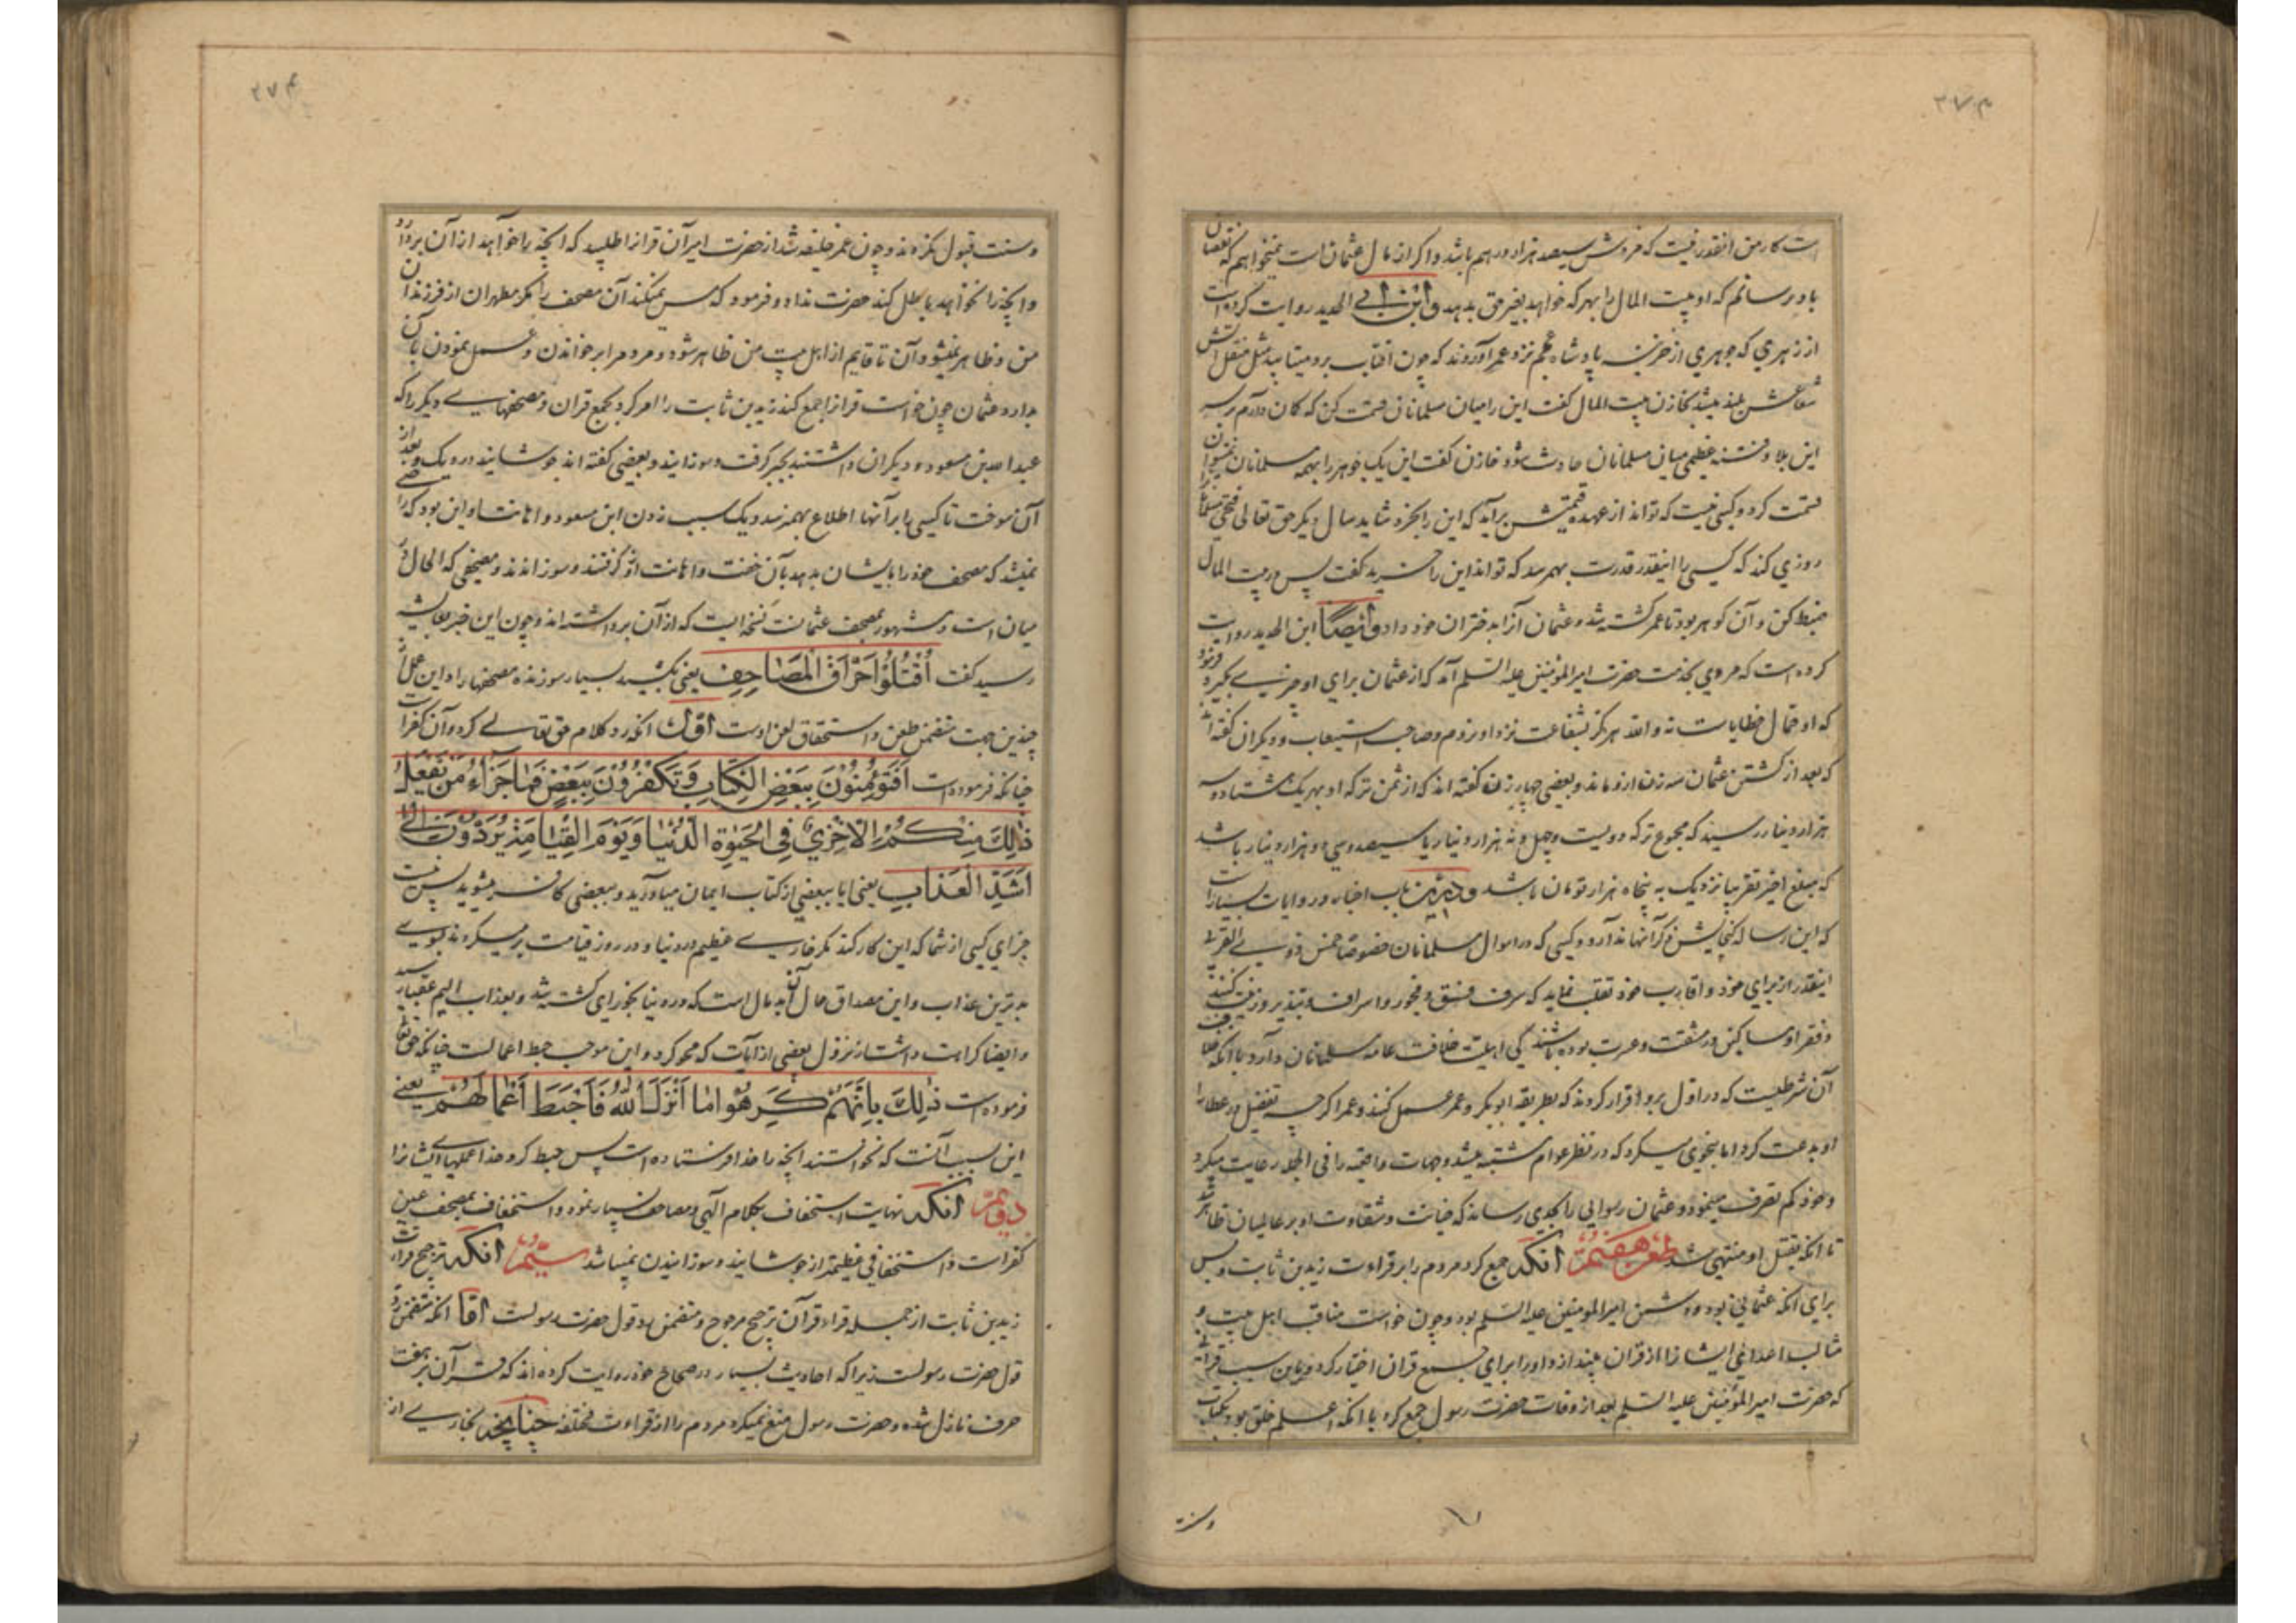 است کار من انقدر نیست که فروشش سیصد هزار درهم باشد و اگر از مال عثمان است نمیخواهم که نقصان
باو برسانم که او بیت المال را بهر که خواهد بغیر حق بدهد و ابن ابی الحدید روایت کرده است
از زهری که جوهری از خزینه پادشاه عجم نزد عمر آوردند که چون افتاب برو میتابید مثل منقل آتش
شعاعش بلند میشد بخازن بیت المال گفت این را میان مسلمانان قسمت کن که کان دارم بر سر
این بلا و فتنه عظیمی میان مسلمانان حادث شود خازن گفت این یک جوهر را بهمه مسلمانان نمیتوان
قسمت کرد و کسی نیست که تواند از عهده قیمتش برآید که این را بخرد شاید سال دیگر حق تعالی فتحی مسلمانانرا
روزی کند که کسی را اینقدر قدرت بهمرسد که تواند این را خرید گفت پس در بیت المال
ضبط کن و آن کوهر بود تا عمر کشته شد و عثمان آنرا بدختران خود داد و ایضاً ابن الحدید روایت
کرده است که مردی بخدمت حضرت امیرالمؤمنین علیه السلم آمد که از عثمان برای او چیزی بگیرد فرمود
که او حمال خطایاست نه والله هرگز بشفاعت نزد او نروم و صاحب استیعاب و دیگران گفته اند
که بعد از کشتن عثمان سه زن ازو ماند و بعضی چهار زن گفته اند که از ثمن ترکه او بهر یک هشتاد و سه
هزار دینار رسید که مجموع ترکه دویست و چهل و نه هزار دینار یا سیصد و سی و دو هزار دینار باشد
که مبلغ اخیر تقریبا نزدیک به پنجاه هزار تومان باشد و درین باب اخبار و روایات بسیار است
که این رساله گنجایش ذکر آنها ندارد و کسی که در اموال مسلمانان خصوصا خمس ذوی القربی
اینقدر از برای خود و اقارب خود تغلب نماید که صرف فسق و فجور و اسراف و تبذیر و زینت کنند
و فقرا و مساکین در مشقت و عسرت بوده باشند کی اهلیت خلافت عامه مسلمانان دارد با آنکه خلاف
آن شرطیست که در اول برو قرار کردند که بطریقه ابوبکر و عمر عمل کند و عمر اگرچه تفضیل در عطایا
او بدعت کرد اما بنحوی میکرد که در نظر عوام مشتبه میشد و جهات واقعیه را فی الجمله رعایت میکرد
و خود کم تصرف مینمود و عثمان رسوایی را بجدی رساند که خیانت و شقاوت او بر عالمیان ظاهر شد
تا انکه بقتل او منتهی شد طعن هفتم انکه جمع کرد مردم را بر قراءت زید بن ثابت و بس
برای انکه عثمانی بود و دشمن امیرالمؤمنین علیه السلم بود و چون خواست مناقب اهل بیت و
مثالب اعدای ایشانرا از قران بیندازد او را برای جمع قران اختیار کرد و باین سبب قرآنی
که حضرت امیرالمؤمنین علیه السلم بعد از وفات حضرت رسول جمع کرد با انکه اعلم خلق بود بکتاب
وسنت
و سنت قبول نکردند و چون عمر خلیفه شد از حضرت امیر آن قرآنرا طلبید که انچه را خواهد از آن بردارد
و انچه را نخواهد باطل کند حضرت نداد و فرمود که مس نمیکند آن مصحف را مگر مطهران از فرزندان
من و ظاهر نمیشود آن تا قایم از اهل بیت من ظاهر شود و مردم را بر خواندن و عمل نمودن بآن
بدارد عثمان چون خواست قرآنرا جمع کند زید بن ثابت را امر کرد بجمع قران و مصحفهای دیگر را که
عبدالله بن مسعود و دیگران داشتند بجبر گرفت و سوزانید و بعضی گفته اند جوشانید در دیک و بعد از
آن سوخت تا کسی را بر آنها اطلاع بهمنرسد و یک سبب زدن ابن مسعود و اهانت او این بود که راضی
نمیشد که مصحف خود را بایشان بدهد بآن خفت و اهانت ازو گرفتند و سوزاندند و مصحفی که الحال در
میان است و مشهور بمصحف عثمانست نسخه ایست که از آن برداشته اند و چون این خبر بعایشه
رسید گفت اُقْتُلُوا حَرَّاقَ الْمَصَاحِفِ یعنی بکشید بسیار سوزنده مصحفها را و این عمل از
چندین جهت متضمن طعن و استحقاق لعن اوست اول انکه رد کلام حق تعالی کرد و آن کفر است
چنانکه فرموده است اَفَتُؤْمِنُونَ بِبَعْضِ الْکِتَابِ وَتَکْفُرُونَ بِبَعْضٍ فَمَا جَزَاءُ مَنْ یَفْعَلُ
ذٰلِکَ مِنْکُمْ اِلَّا خِزْیٌ فِی الْحَیٰوةِ الدُّنْیَا وَیَوْمَ الْقِیٰمَةِ یُرَدُّونَ اِلٰی
اَشَدِّ الْعَذَابِ یعنی ایا ببعضی از کتاب ایمان میاورید و ببعضی کافر میشوید پس نیست
جزای کسی از شما که این کار کند مگر خواری عظیم در دنیا و در روز قیامت برمیگردند بسوی
بدترین عذاب و این مصداق حال آن بدمال است که در دنیا بخواری کشته شد و بعذاب الیم عقبی رسید
و ایضا کراهت داشت از نزول بعضی از آیات که محو کرد و این موجب حبط اعمالست چنانکه حق تعالی
فرموده است ذٰلِکَ بِاَنَّهُمْ کَرِهُوا مَا اَنْزَلَ اللّٰهُ فَاَحْبَطَ اَعْمَالَهُمْ یعنی
این بسبب آنست که نخواستند انچه را خدا فرستاده است پس حبط کرد خدا عملهای ایشانرا
دویم انکه نهایت استخفاف بکلام الهی و مصاحف بسیار نمود و استخفاف بمصحف عین
کفر است و استخفافی عظیمتر از جوشانیدن و سوزانیدن نمیباشد سیّم انکه ترجیح قراءت
زید بن ثابت از جمله قراء قرآن ترجیح مرجوح و متضمن رد قول حضرت رسولست اما انکه متضمن رد
قول حضرت رسولست زیرا که احادیث بسیار در صحاح خود روایت کرده اند که قرآن بر هفت
حرف نازل شده و حضرت رسول منع نمیکرد مردم را از قراءت مختلفه چنانچه بخاری از